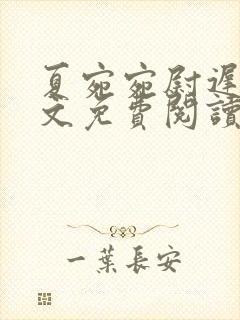 夏宛宛尉遲
文免費閱讀
一葉長安